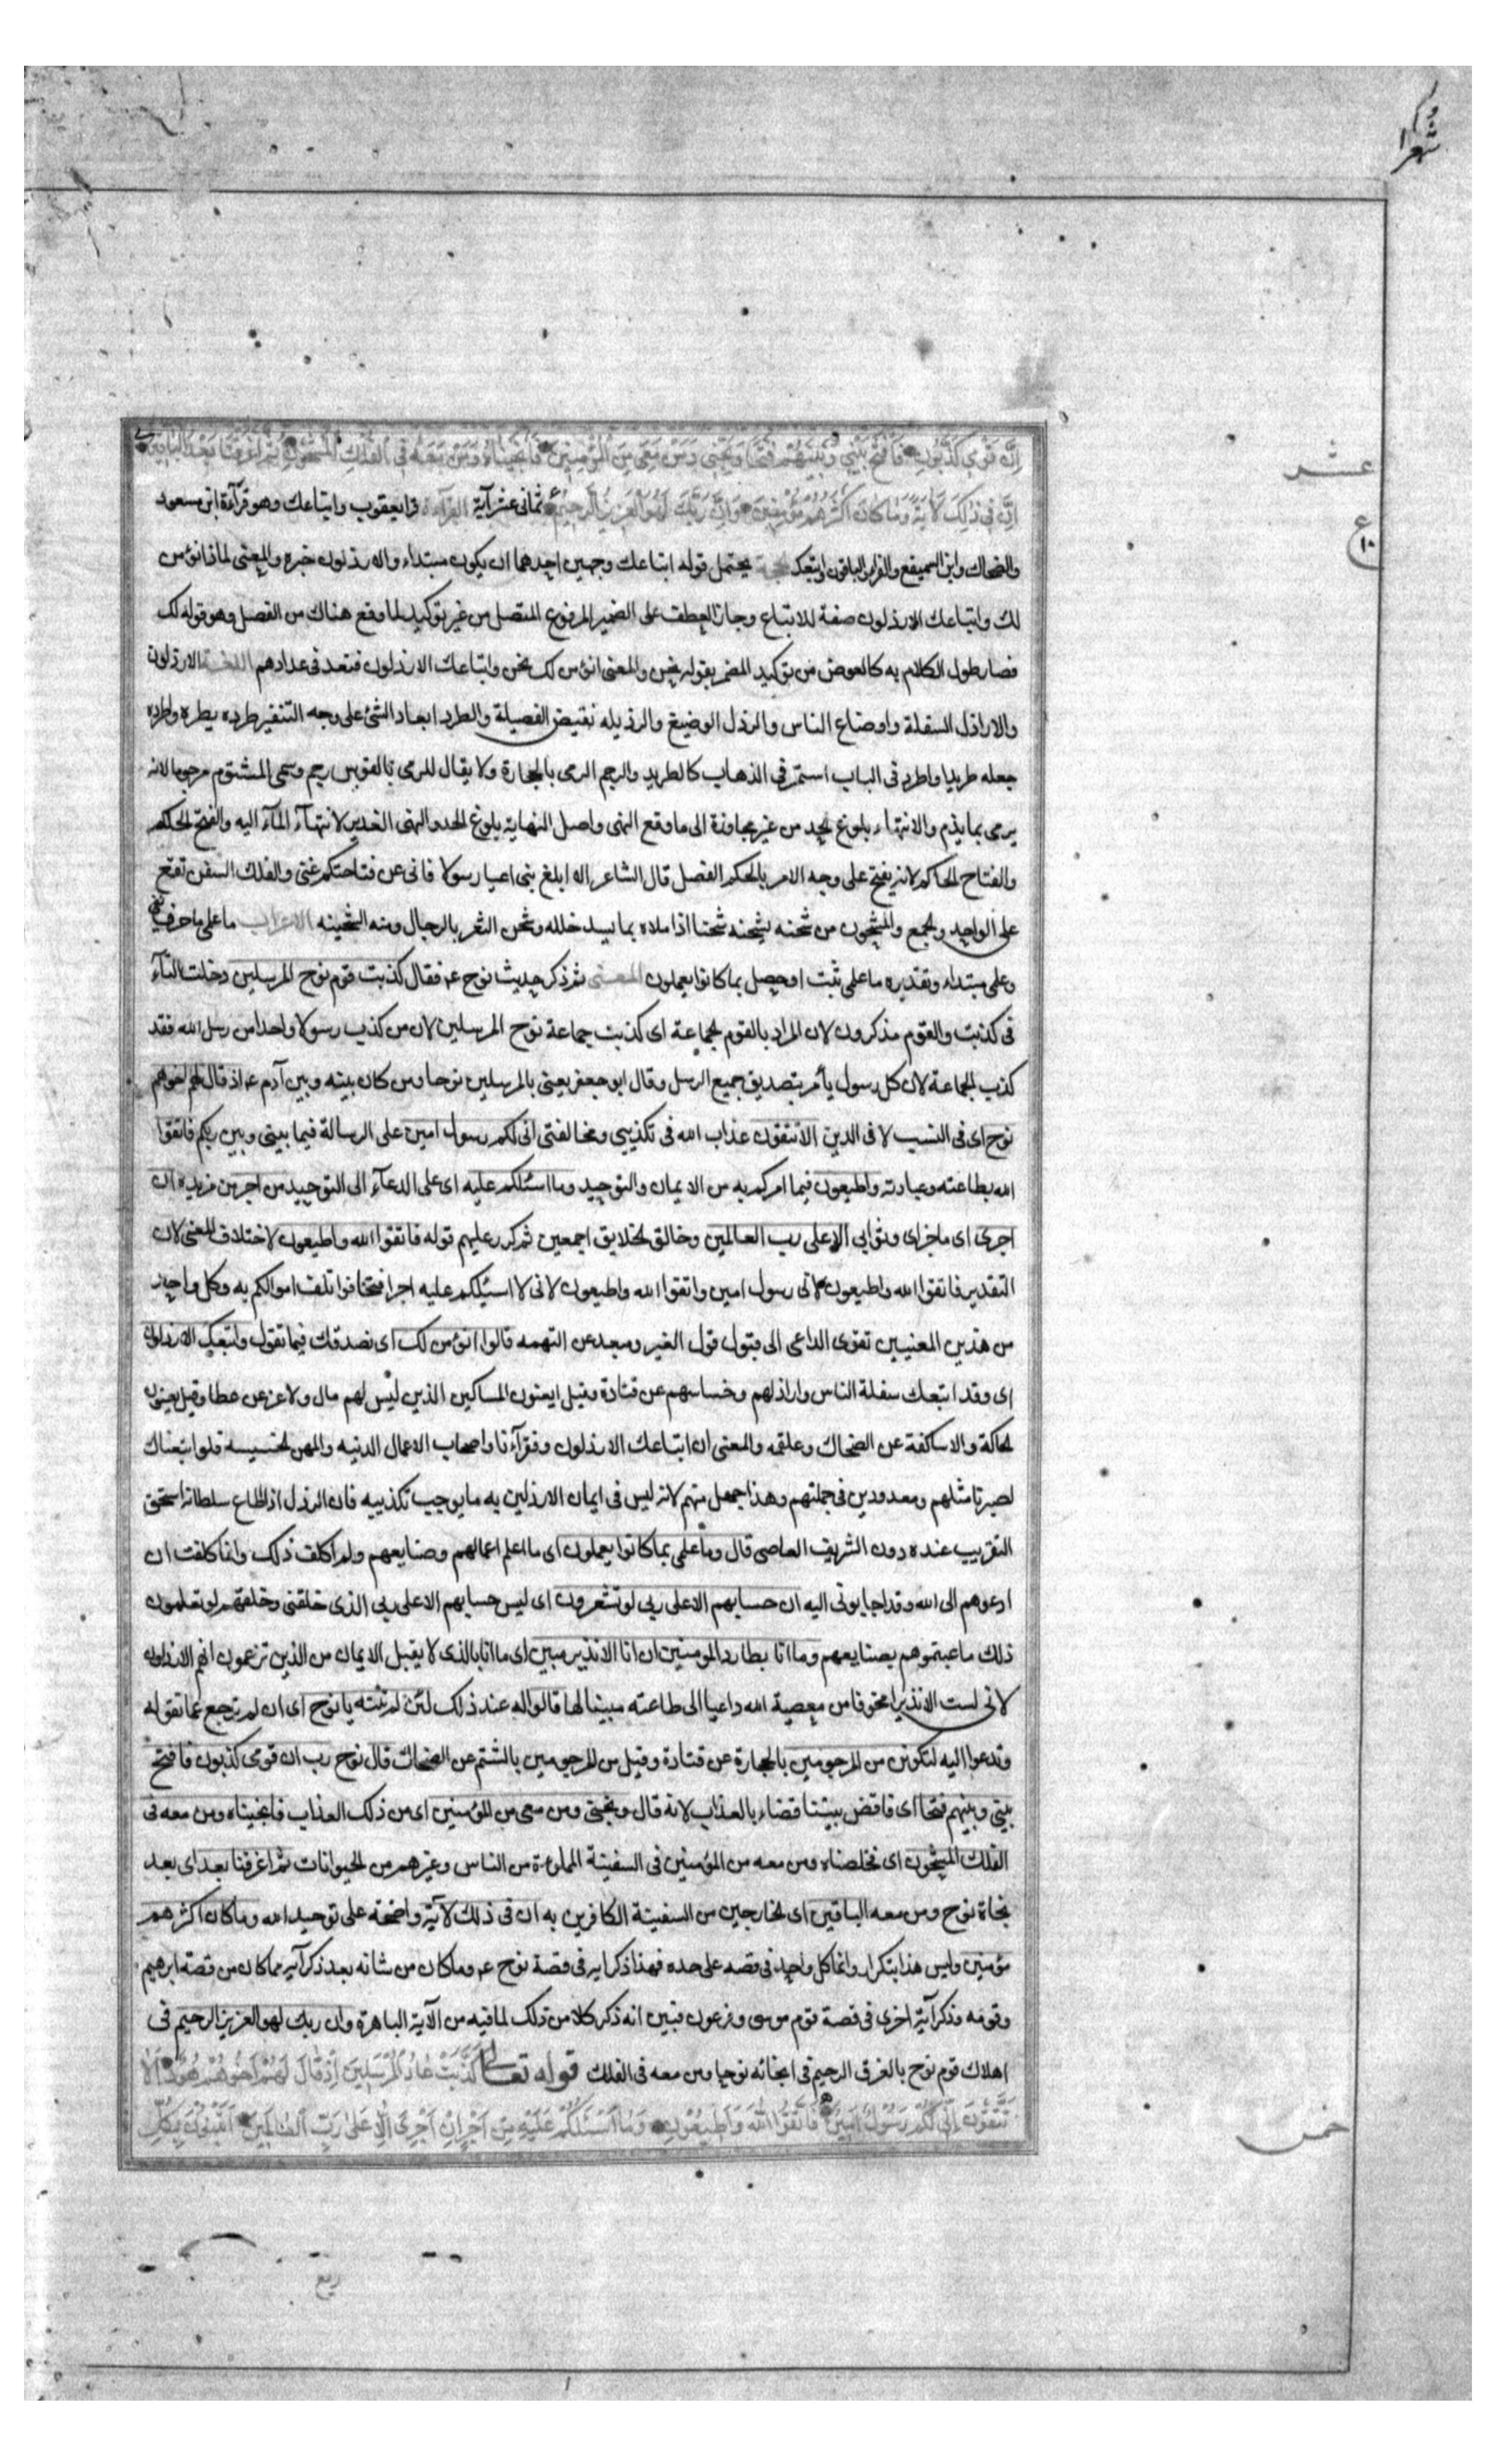 شعرا
إِنَّ قَوْمِي كَذَّبُونِ فَافْتَحْ بَيْنِي وَبَيْنَهُمْ فَتْحًا وَنَجِّنِي وَمَنْ مَعِيَ مِنَ الْمُؤْمِنِينَ فَأَنْجَيْنَاهُ وَمَنْ مَعَهُ فِي الْفُلْكِ الْمَشْحُونِ ثُمَّ أَغْرَقْنَا بَعْدُ الْبَاقِينَ
عشر
إِنَّ فِي ذَلِكَ لَآيَةً وَمَا كَانَ أَكْثَرُهُمْ مُؤْمِنِينَ وَإِنَّ رَبَّكَ لَهُوَ الْعَزِيزُ الرَّحِيمُ ثمانى عشر آية القرآءة قرا يعقوب واتباعك وهو قرآءة ابن مسعود
ع
١٠
والضحاك وابن السميفع والقرا الباقون واتبعك يحتمل قوله اتباعك وجهين احدهما ان يكون مبتداء والارذلون خبره والمعنى لماذا نؤمن
لك واتباعك الارذلون صفة للاتباع وجاز العطف على الضمير المرفوع المتصل من غير توكيد لما وقع هناك من الفصل وهو قوله لك
فصار طول الكلام به كالعوض من توكيد المضمر بقوله نحن والمعنى انؤمن لك نحن واتباعك الارذلون فنعد فى عدادهم اللغة الارذلون
والاراذل السفلة واوضاع الناس والرذل الوضيع والرذيله نقيض الفضيلة والطرد ابعاد الشئ على وجه التنفير طرده يطرده واطرده
جعله طريدا واطرد فى الباب استمر فى الذهاب كالطريد والرجم الرمى بالحجارة ولا يقال للرمى بالقوس رجم وسمى المشتوم مرجوما لانه
يرمى بما يذم والانتهاء بلوغ الحد من غير مجاوزة الى ما وقع النهى واصل النهاية بلوغ الحد والنهى الغدير لانتهآء المآء اليه والفتح الحكم
والفتاح الحاكم لانه يفتح على وجه الامر بالحكم الفصل قال الشاعر الا ابلغ بنى اعيا رسولا فانى عن فتاحتكم غنى والفلك السفن تقع
على الواحد والجمع والمشحون من شحنه يشحنه شحنا اذا ملاه بما يسد خلله وشحن الثغر بالرجال ومنه الشحينه الاعراب ما على ما حرف نفى
وعلى مبتداء وتقديره ما علمى ثبت او حصل بما كانوا يعملون المعنى ثم ذكر حديث نوح عم فقال كذبت قوم نوح المرسلين دخلت التآء
فى كذبت والقوم مذكرون لان المراد بالقوم الجماعة اى كذبت جماعة نوح المرسلين لان من كذب رسولا واحدا من رسل الله فقد
كذب الجماعة لان كل رسول يأمر بتصديق جميع الرسل وقال ابو جعفر يعنى بالمرسلين نوحا ومن كان بينه وبين آدم عم اذ قال لهم اخوهم
نوح اى فى النسب لا فى الدين الا تتقون عذاب الله فى تكذيبى ومخالفتى انى لكم رسول امين على الرسالة فيما بينى وبين ربكم فاتقوا
الله بطاعته وعبادته واطيعون فيما امركم به من الايمان والتوحيد وما اسئلكم عليه اى على الدعآء الى التوحيد من اجر من مزيده ان
اجرى اى ما جزاى وثوابى الا على رب العالمين وخالق الخلايق اجمعين ثم كرر عليهم قوله فاتقوا الله واطيعون لاختلاف المعنى لان
التقدير فاتقوا الله واطيعون لانى رسول امين واتقوا الله واطيعون لانى لا اسئلكم عليه اجرا فتخافوا تلف اموالكم به وكل واحد
من هذين المعنيين تقوى الداعى الى قبول قول الغير ومبعد عن التهمه قالوا انؤمن لك اى نصدقك فيما تقول واتبعك الارذلون
اى وقد اتبعك سفلة الناس واراذلهم وخساسهم عن قتادة وقيل يعنون المساكين الذين ليس لهم مال ولا عز عن عطا وقيل يعنون
الحاكة والاساكفة عن الضحاك وعلقمه والمعنى ان اتباعك الارذلون وفقرآءنا واصحاب الاعمال الدنيه والمهن الخسيسه فلو اتبعناك
لصرنا مثلهم ومعدودين فى جملتهم وهذا جهل منهم لانه ليس فى ايمان الارذلين به ما يوجب تكذيبه فان الرذل اذا اطاع سلطانه استحق
التقريب عنده دون الشريف العاصى قال وما علمى بما كانوا يعملون اى ما اعلم اعمالهم وصنايعهم ولم اكلف ذلك وانما كلفت ان
ادعوهم الى الله وقد اجابونى اليه ان حسابهم الا على ربى لو تشعرون اى ليس حسابهم الا على ربى الذى خلقنى وخلقهم لو تعلمون
ذلك ما عبتموهم بصنايعهم وما انا بطارد المومنين ان انا الا نذير مبين اى ما انا بالذى لا يقبل الايمان من الذين تزعمون انهم الارذلون
لانى لست الا نذيرا مخوفا من معصية الله داعيا الى طاعته مبينا لها قالوا له عند ذلك لئن لم تنته يا نوح اى ان لم ترجع عما تقوله
وتدعوا اليه لتكونن من المرجومين بالحجارة عن قتادة وقيل من المرجومين بالشتم عن الضحاك قال نوح رب ان قومى كذبون فافتح
بينى وبينهم فتحا اى فاقض بيننا قضاء بالعذاب لانه قال ونجنى ومن معى من المؤمنين اى من ذلك العذاب فانجيناه ومن معه فى
الفلك المشحون اى فخلصناه ومن معه من المؤمنين فى السفينة المملوءة من الناس وغيرهم من الحيوانات ثم اغرقنا بعد اى بعد
نجاة نوح ومن معه الباقين اى الخارجين من السفينة الكافرين به ان فى ذلك لآية واضحة على توحيد الله وما كان اكثرهم
مؤمنين وليس هذا بتكرار وانما كل واحد فى قصه على حده فهذا ذكر آية فى قصة نوح عم وما كان من شانه بعد ذكر آية مما كان من قصة ابرهيم
وقومه وذكر آية اخرى فى قصة قوم موسى وفرعون فبين انه ذكر كلا من ذلك لما فيه من الآية الباهرة وان ربك لهو العزيز الرحيم فى
اهلاك قوم نوح بالغرق الرحيم فى انجائه نوحا ومن معه فى الفلك قوله تعالى كَذَّبَتْ عَادٌ الْمُرْسَلِينَ إِذْ قَالَ لَهُمْ أَخُوهُمْ هُودٌ أَلَا
تَتَّقُونَ إِنِّي لَكُمْ رَسُولٌ أَمِينٌ فَاتَّقُوا اللَّهَ وَأَطِيعُونِ وَمَا أَسْئَلُكُمْ عَلَيْهِ مِنْ أَجْرٍ إِنْ أَجْرِيَ إِلَّا عَلَى رَبِّ الْعَالَمِينَ أَتَبْنُونَ بِكُلِّ
خمس
ريع